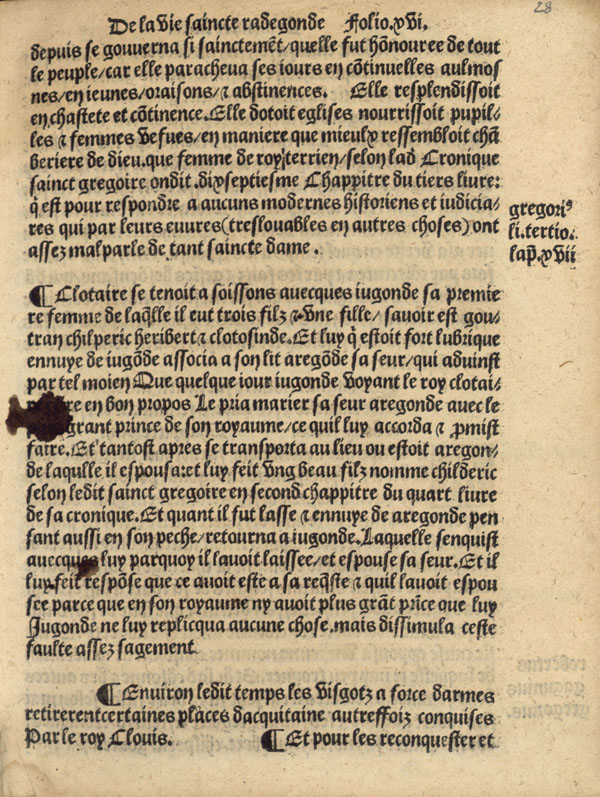 28
De la vie saincte radegonde Folio.xvi.
depuis se gouuerna si sainctemēt/quelle fut hōnouree de tout
le peuple/car elle paracheua ses iours en cōtinuelles aulmos
nes/en ieunes/oraisons/⁊ abstinences. Elle resplendissoit
en chastete et cōtinence.Elle dotoit eglises nourrissoit pupil-
les ⁊ femmes vefues/en maniere que mieulx ressembloit chā
beriere de dieu.que femme de roy terrien/selon lad Cronique
sainct gregoire ondit.dixseptiesme Chappitre du tiers liure:
q̄ est pour respondre a aucuns modernes historiens et iudicia-
res qui par leurs euures(treslouables en autres choses)ont
assez mal parle de tant saincte dame.
gregoriꝰ
li.tertio.
kap̄.xvii
¶ Clotaire se tenoit a soissons auecques iugonde sa premie
re femme de laq̄lle il eut trois filz ⁊ vne fille/ sauoir est gou-
tran chilperic heribert ⁊ clotosinde.Et luy q̄ estoit fort lubrique
ennuye de iugōde associa a son lit aregōde sa seur/qui aduinst
par tel moien Que quelque iour iugonde voyant le roy clotai-
re en bon propos Le pria marier sa seur aregonde auec le
grant prince de son royaume/ce quil luy accorda ⁊ ꝓmist
faire.Et tantost apres se transporta au lieu ou estoit aregon-
de laqulle il espousa:et luy feit vng beau filz nomme childeric
selon ledit sainct gregoire en second chappitre du quart liure
de sa cronique.Et quant il fut lasse ⁊ ennuye de aregonde pen
sant aussi en son peche/retourna a iugonde.Laquelle senquist
auecques luy parquoy il lauoit laissee/et espouse sa seur.Et il
luy feit respōse que ce auoit este a sa req̄ste ⁊ quil lauoit espou
see parce que en son royaume ny auoit plus grāt prīce que luy
Jugonde ne luy replicqua aucune chose.mais dissimula ceste
faulte assez sagement
¶ Enuiron ledit temps les visgotz a force darmes
retirerentcertaines places dacquitaine autreffoiz conquises
Par le roy Clouis. ¶ Et pour les reconquester et